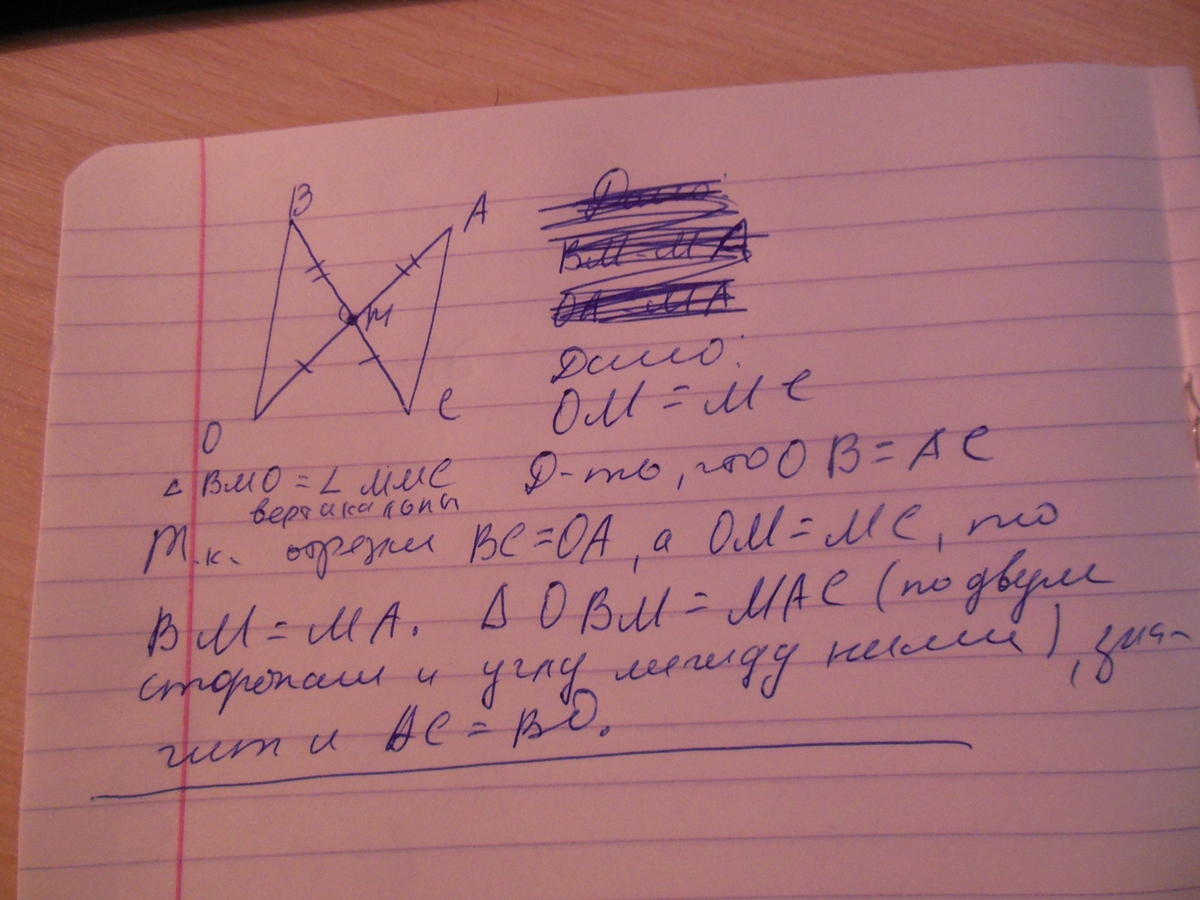 B
A
M
O
C
Дано:
BM = MA
OA MA
Дано:
OM = MC
∠ BMO = ∠ MMC
вертикальны
Д-ть, что OB = AC
Т.к. отрезки BC = OA, а OM = MC, то
BM = MA. Δ OBM = MAC (по двум
сторонам и углу между ними), зна-
чит и AC = BO.